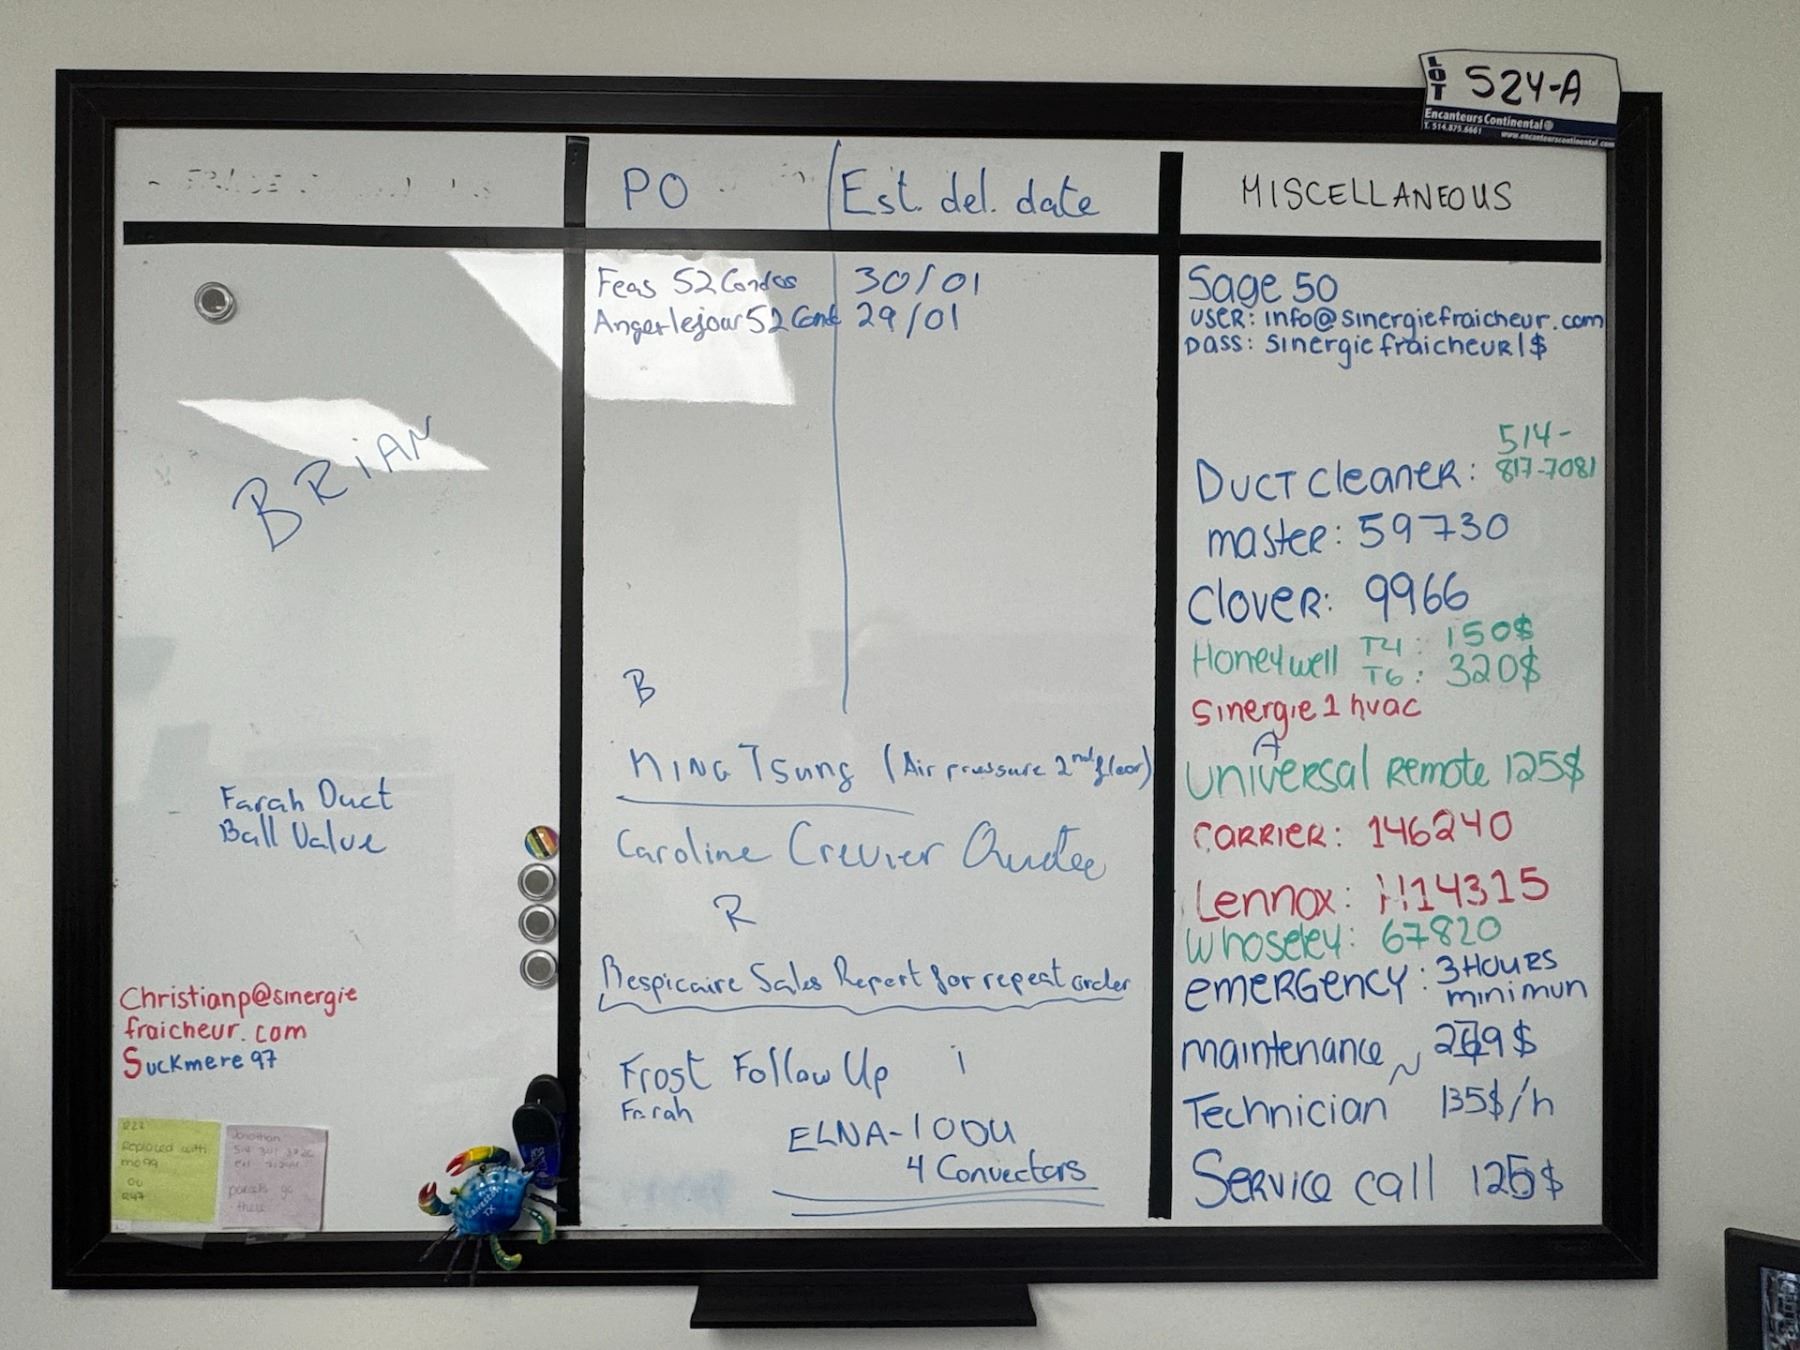 LOT 524-A
Encanteurs Continental
T. 514.875.6661 www.encanteurscontinental.com
PO
Est. del. date
MISCELLANEOUS
BRIAN
Farah Duct
Ball Value
Christianp@sinergie
fraicheur.com
Suckmere97
Replaced with
mo99
ou
Jonathan
Feas 52 Condos 30/01
Angerlejour 52 Cond 29/01
B
NING Tsung (Air pressure 2nd floor)
Caroline Crevier Quotee
R
Respicaire Sales Report for repeat order
Frost Follow Up
Farah
ELNA-100U
4 Convectors
Sage 50
USER: info@sinergiefraicheur.com
pass: sinergiefraicheur1$
514-
Duct cleaner: 817-7081
master: 59730
Clover: 9966
Honeywell T4: 150$
T6: 320$
Sinergie1hvac
A
Universal Remote 125$
CARRIER: 146240
Lennox: H14315
Whoseley: 67820
emergency: 3 Hours
minimun
maintenance
Technician 135$/h
Service call 125$
Galveston
TX